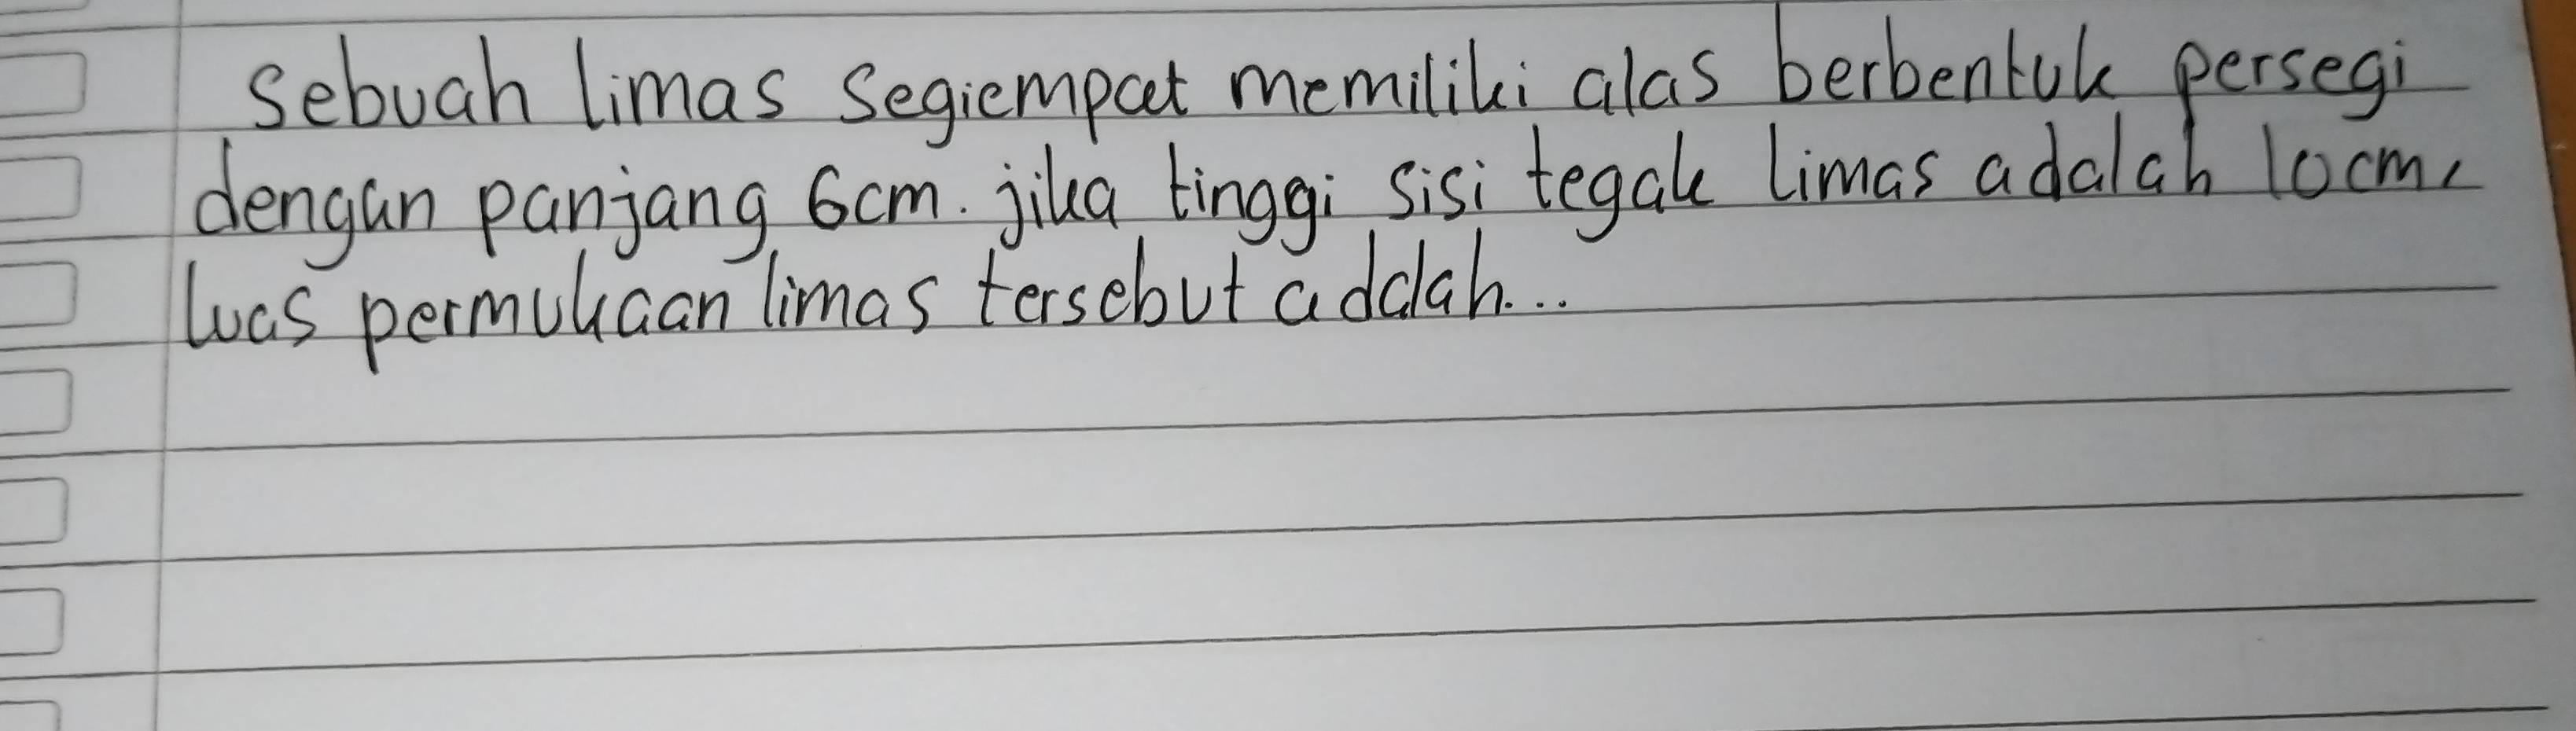 Sebuah limas Segiempat memiliki alas berbentuk persegi
dengan panjang 6cm. jika tinggi sisi tegak limas adalah 10cm,
luas permukaan limas tersebut adalah...